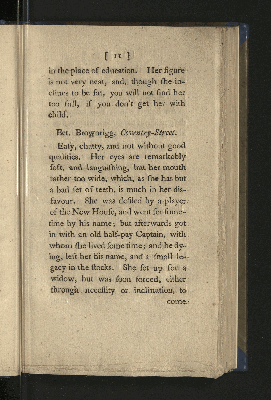 [ 11 ]
in the place of education. Her figure
is not very neat, and, though she in-
clines to be fat, you will not find her
too full, if you don't get her with
child.
Bet. Brownrigg, Coventry-Street.
Easy, chatty, and not without good
qualities. Her eyes are remarkably
soft, and languishing, but her mouth
rather too wide, which, as she has but
a bad set of teeth, is much in her dis-
favour. She was defiled by a player
of the New House, and went for some-
time by his name; but afterwards got
in with an old half-pay Captain, with
whom she lived some time; and he dy-
ing, left her his name, and a small le-
gacy in the stocks. She set up for a
widow, but was soon forced, either
through necessity or inclination, to
come